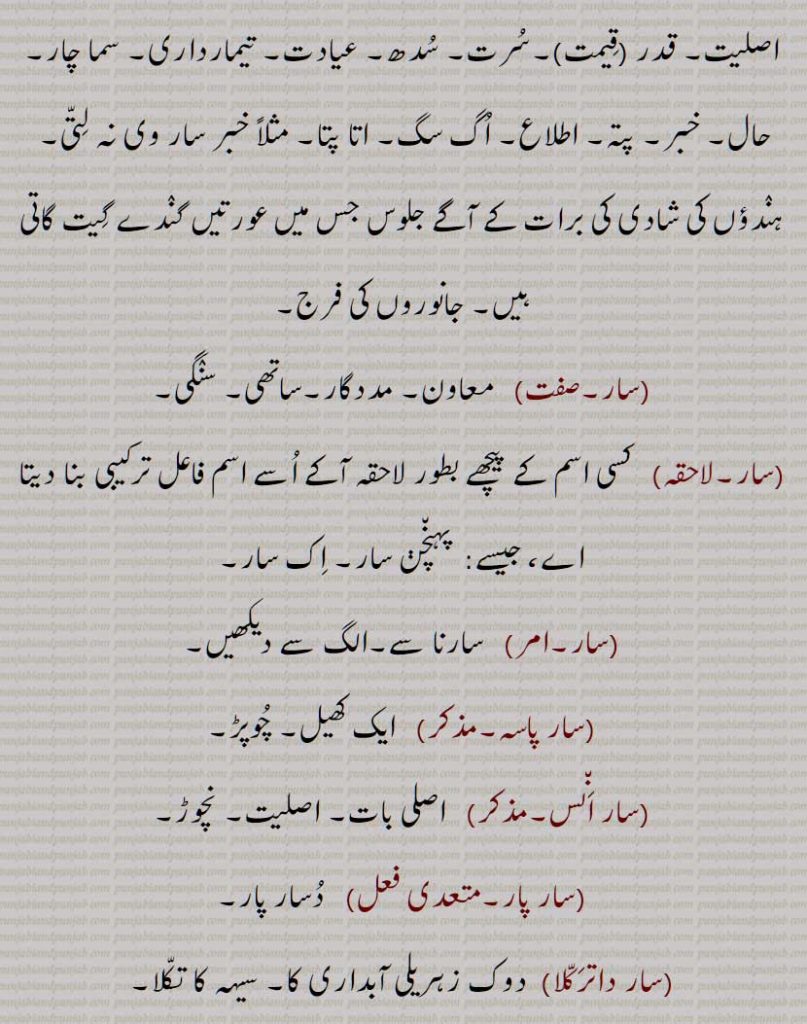 اصلیت۔ قدر (قِیمت)۔ سُرت۔ سُدھ۔ عیادت۔ تیمارداری۔ سماچار۔
حال۔ خبر۔ پتہ۔ اطلاع۔ اُگ سگ۔ اتا پتا۔ مثلاً خبر سار وی نہ لِتّی۔
ہنْدوٴں کی شادی کی برات کے آگے جلوس جس میں عورتیں گنْدے گِیت گاتی
ہیں۔ جانوروں کی فرج۔
(سار۔صفت) معاون۔ مددگار۔ساتھی۔ سنْگی۔
(سار۔لاحقہ) کسی اسم کے پیچھے بطور لاحقہ آکے اُسے اسم فاعل ترکیبی بنا دیتا
اے، جیسے: پہنچّݨ سار۔ اِک سار۔
(سار۔امر) سارنا سے۔الگ سے دیکھیں۔
(سار پاسہ۔مذکر) ایک کھیل۔ چُوپڑ۔
(سار اَنّس۔مذکر) اصلی بات۔ اصلیت۔ نچوڑ۔
(سار پار۔متعدی فعل) دُسار پار۔
(سار داترَکّلا) دوک زہریلی آبداری کا۔ سیہہ کا تکّلا۔